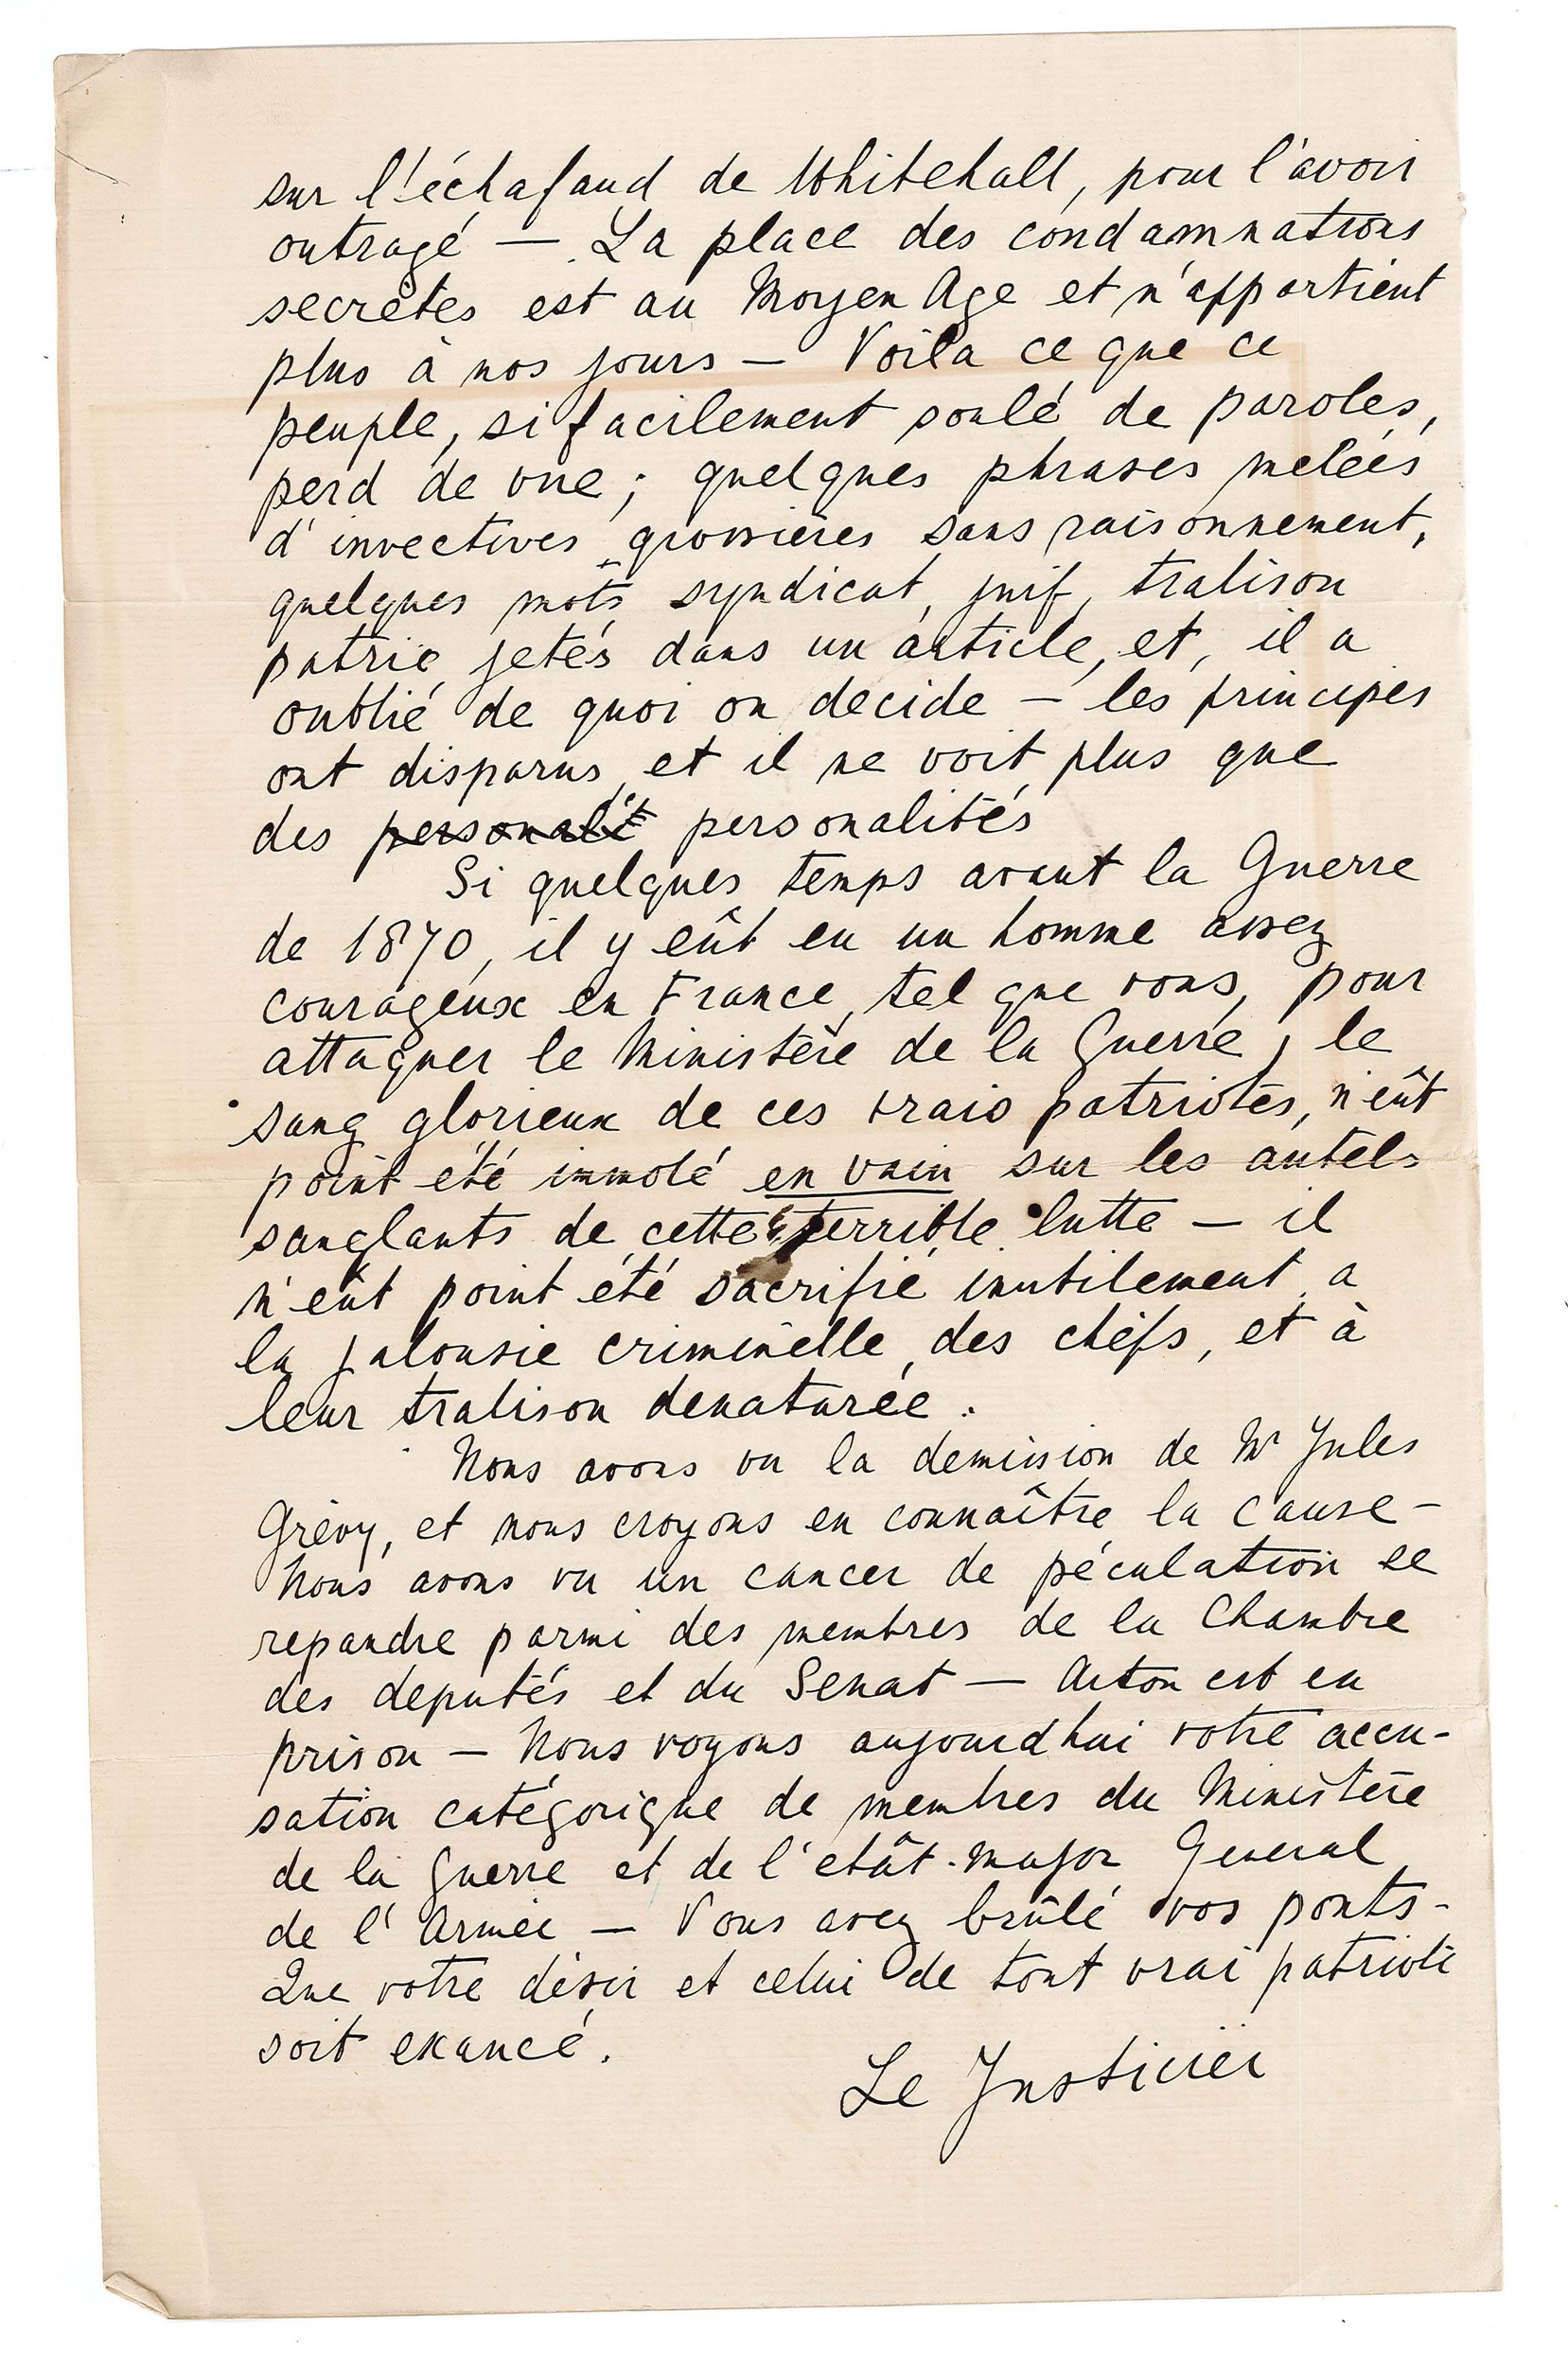 sur l'échafaud de Whitehall, pour l'avoir
outragé — La place des condamnations
secrètes est au Moyen Age et n'appartient
plus à nos jours — Voila ce que ce
peuple, si facilement soulé de paroles,
perd de vue ; quelques phrases melées
d'invectives grossières sans raisonnement,
quelques mots syndicat, juif, trahison
patrie jetés dans un article, et, il a
oublié de quoi on decide — les principes
ont disparus, et il ne voit plus que
des personalit personalités
Si quelques temps avant la Guerre
de 1870, il y eût eu un homme assez
courageux en France, tel que vous, pour
attaquer le Ministère de la Guerre, le
sang glorieux de ces vrais patriotes, n'eût
point été immolé en vain sur les autels
sanglants de cette terrible lutte — il
n'eût point été sacrifié inutilement a
la jalousie criminelle, des chefs, et à
leur trahison denaturée.
Nous avons vu la demission de Mr Jules
Grévy, et nous croyons en connaître la cause —
Nous avons vu un cancer de péculation se
repandre parmi des membres de la Chambre
des deputés et du Senat — Arton est en
prison — Nous voyons aujourdhui votre accu-
sation catégorique de membres du Ministère
de la Guerre et de l'etât-major General
de l'Armée — Vous avez brûlé vos ponts -
Que votre désir et celui de tout vrai patriote
soit exaucé.
Le Justicier